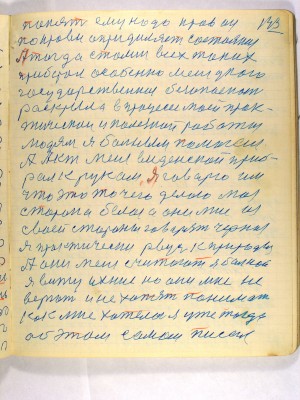 понят ему надо прав ли 143
по крови определяет состояния
А тогда стали всех таких
прибрали особенно меня много
государственная безопасность
раскрыла в процессе моей прак-
тической и полезной работы
людям я больным помогал
А Акт меня введенской приб-
рал к рукам. Я говорю им
что это то чего делаю моя
сторона белая а они мне из
своей стороны говорят черная
я практически рвусь к природе
А они меня считают я больной
я вижу ихнее но они мне не
верят и не хотят понимать
Как мне хотелось я уже тогда
об этом самом писал